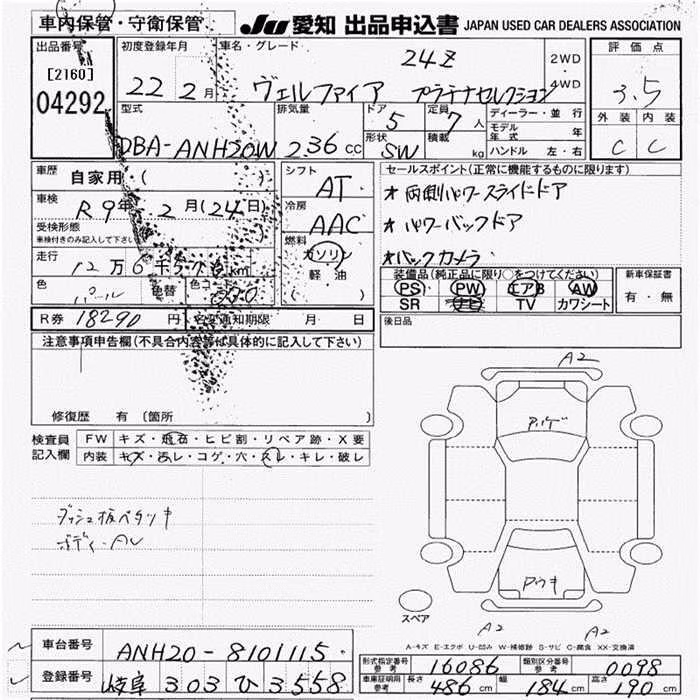 車内保管・守衛保管 JU 愛知 出品申込書 JAPAN USED CAR DEALERS ASSOCIATION
出品番号 初度登録年月 車名・グレード 24Z 2WD 評価点
[2160] 22 2月 ヴェルファイア プラチナセレクション 4WD 3.5
04292 型式 排気量 ドア 5 定員 7人 ディーラー・並行 外装 内装
モデル年式 年
DBA-ANH20W 2.36cc 形状 SW 積載 kg ハンドル 左・右 C C
車歴 自家用( ) シフト AT セールスポイント(正常に機能するものに限ります)
車検 R9年 2月(24日) 冷房 AAC 両側パワースライドドア
受検形態 パワーバックドア
車検付きのみ記入して下さい 燃料 ガソリン バックカメラ
走行 12万6千 km 軽油 装備品(純正品に限り○をつけてください) 新車保証書
色 パール 色替 色コード ( ) PS PW エアB AW 有・無
SR ナビ TV カワシート
R券 18290円 名変通知期限 月 日 後日品
注意事項申告欄(不具合内容等は具体的に記入して下さい)
A2
修復歴 有 〔箇所 〕
検査員 FW キズ・飛石・ヒビ割・リペア跡・X要
記入欄 内装 キズ・汚レ・コゲ・穴・スレ・キレ・破レ
ダッシュ板ベタツキ
ボディーAU
スペア
A2 A2
A-キズ E-エクボ U-凹み W-補修跡 S-サビ C-腐食 XX-交換済
車台番号 ANH20-8101115
型式指定番号 参考 16086 類別区分番号 参考 0098
登録番号 岐阜 303 ひ 3558 車庫証明用 参考 長さ 486cm 幅 184cm 高さ 190cm